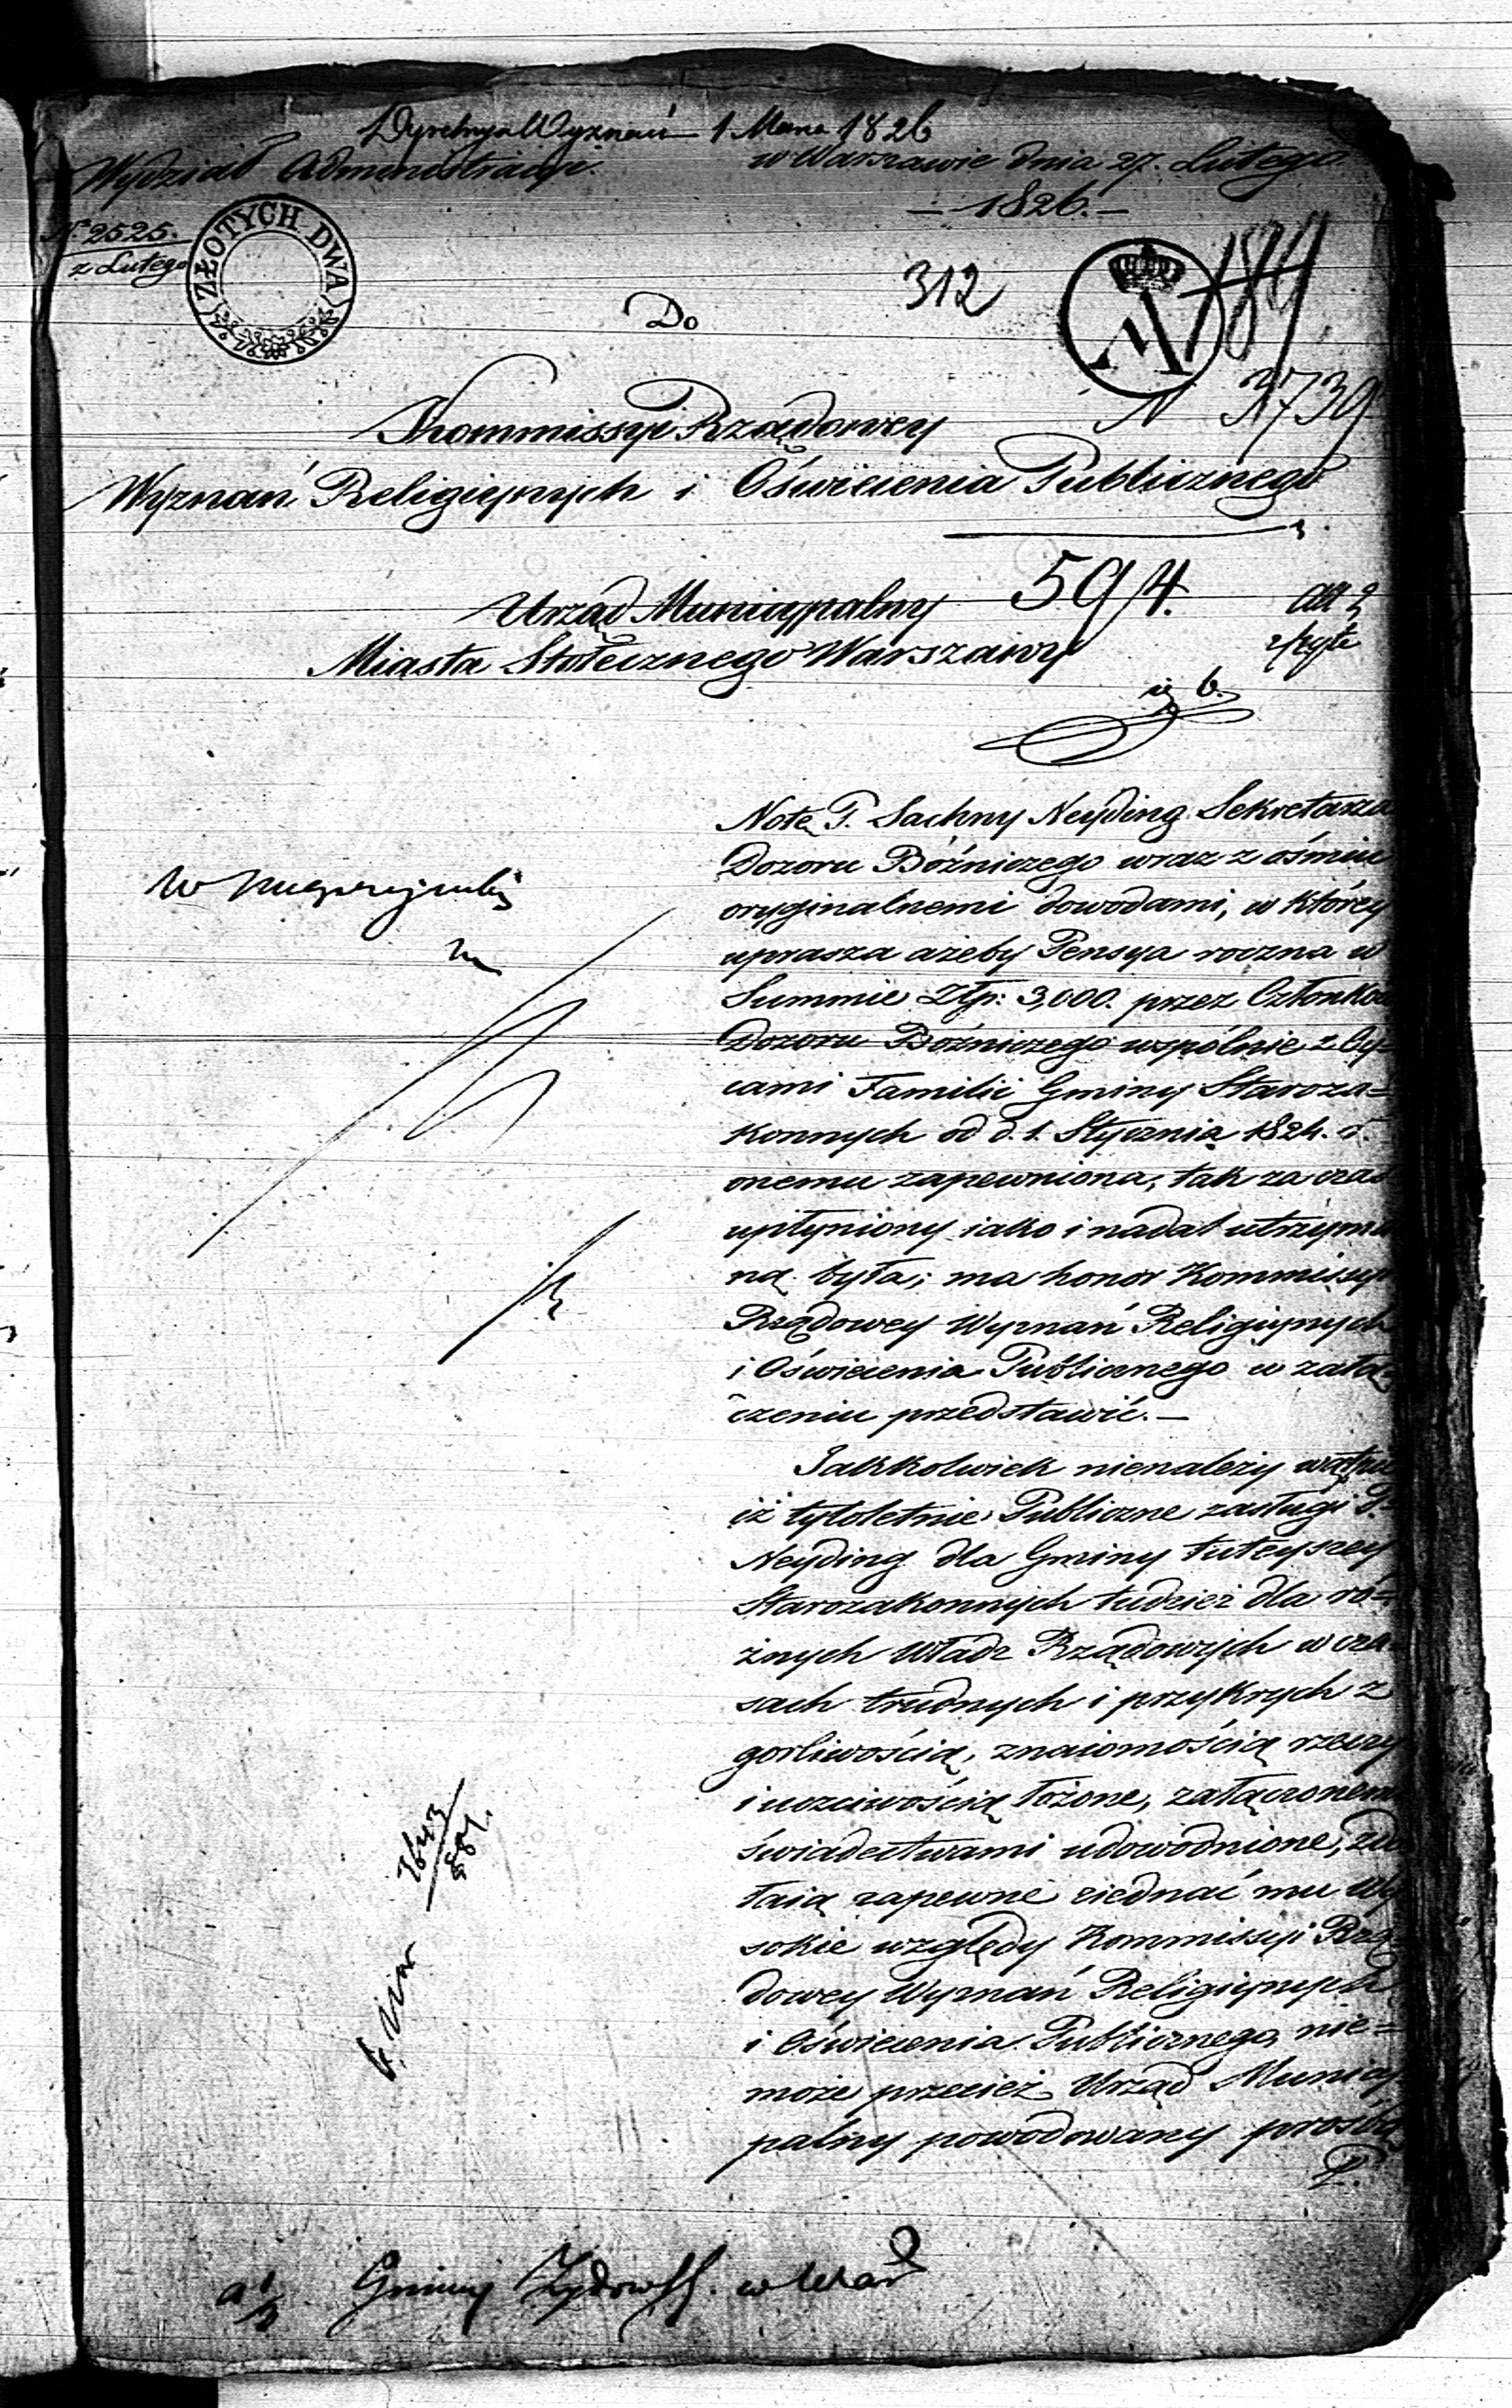 Dyrekcya Wyznań 1 Marca 1826
Wydział Administracyi.
w Warszawie dnia 27. Lutego
— 1826. —
N.º 2525.
z Lutego
ZŁOTYCH DWA
312
184
Do
N 3739
Kommissyi Rządowey
Wyznań Religiynych i Oświecenia Publicznego
Urząd Municypalny
594.
Miasta Stołecznego Warszawy
Notę P. Sachny Neyding Sekretarza
Dozoru Bóźniczego wraz z ośmiu
oryginalnemi dowodami, w którey
uprasza ażeby Pensya roczna w
Summie Złp: 3,000. przez Członków
Dozoru Bóźniczego wspólnie z Oy=
cami Familii Gminy Staroza=
konnych od d. 1. Stycznia 1824. r.
onemu zapewniona, tak za czas
upłyniony iako i nadal utrzyma
ną była; ma honor Kommissyi
Rządowey Wyznań Religiynych
i Oświecenia Publicznego w załą
czeniu przedstawić. —
Jakkolwiek nienależy wątpić
iż tyloletnie Publiczne zasługi P.
Neyding dla Gminy tuteyszey
Starozakonnych tudzież dla ró=
żnych Władz Rządowych w cza
sach trudnych i przykrych z
gorliwością, znaiomością rzeczy
i uczciwością łożone, załączonemi
świadectwami udowodnione, zdo
łaią zapewne ziednać mu Wy
sokie względy Kommissyi Rzą
dowey Wyznań Religiynych
i Oświecenia Publicznego, nie=
może przecież Urząd Municy
palny powodowany prośbą
P.
3643
884.
Gminy Żydowsk. w War